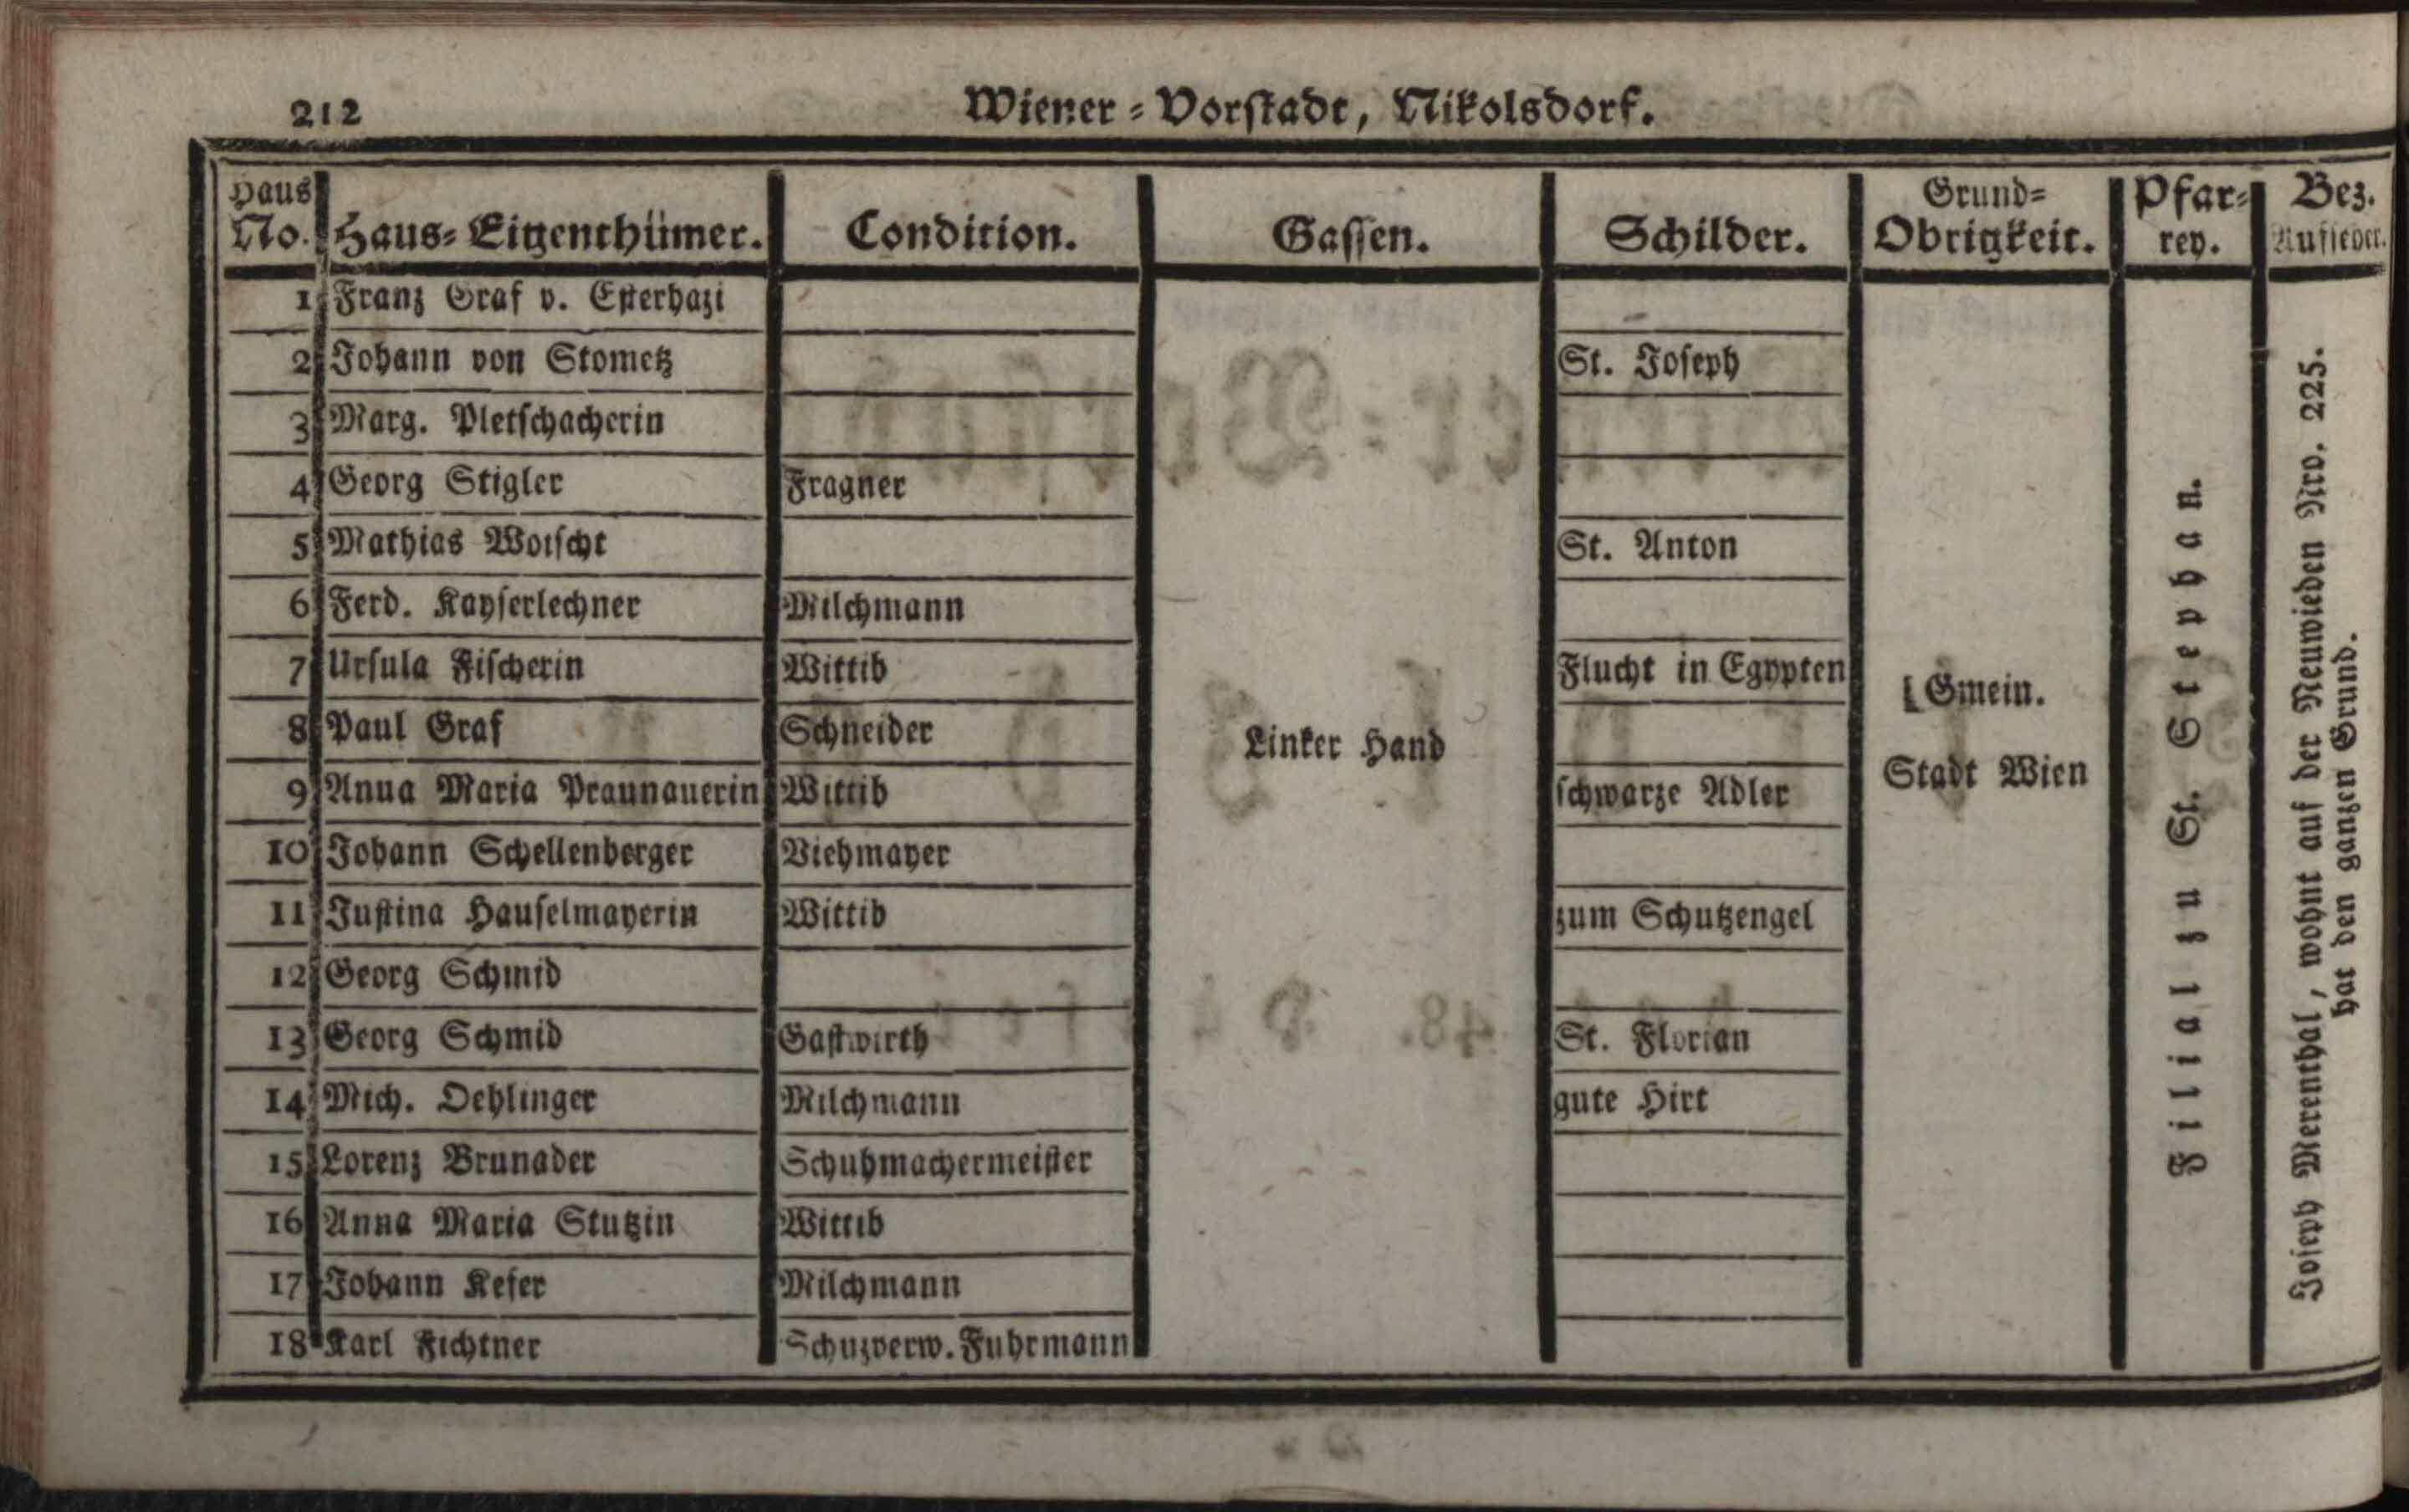 212
Wiener-Vorstadt, Nikolsdorf.
Haus No. Haus-Eigenthümer. Condition. Gassen. Schilder. Grund-Obrigkeit. Pfar-rey. Bez. Aufseher.
1 Franz Graf v. Esterhazi
2 Johann von Stometz St. Joseph
3 Marg. Pletschacherin
4 Georg Stigler Fragner
5 Mathias Woischt St. Anton
6 Ferd. Kayserlechner Milchmann
7 Ursula Fischerin Wittib Flucht in Egypten
8 Paul Graf Schneider
9 Anua Maria Praunauerin Wittib schwarze Adler
10 Johann Schellenberger Viehmayer
11 Justina Hauselmayerin Wittib zum Schutzengel
12 Georg Schmid
13 Georg Schmid Gastwirth St. Florian
14 Mich. Oehlinger Milchmann gute Hirt
15 Lorenz Brunader Schuhmachermeister
16 Anna Maria Stutzin Wittib
17 Johann Kefer Milchmann
18 Karl Fichtner Schuzverw. Fuhrmann
Linker Hand
Gmein.
Stadt Wien
Filial zu St. Stephan.
Joseph Merenthal, wohnt auf der Neuwieden Nro. 225.
hat den ganzen Grund.